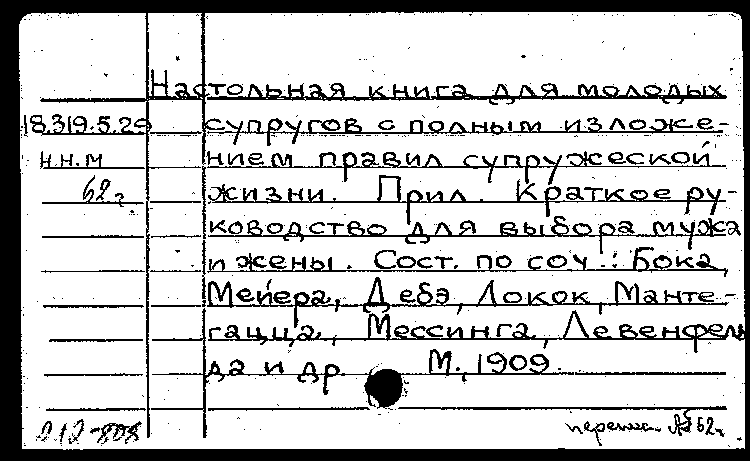 Настольная книга для молодых
18.319.5.29 супругов с полным изложе-
н.н.м нием правил супружеской
62г. жизни. Прил. Краткое ру-
ководство для выбора мужа
и жены. Сост. по соч.: Бока,
Мейера, Дебэ, Локок, Манте-
гацца, Мессинга, Левенфель
да и др. М., 1909.
212-808
62г.